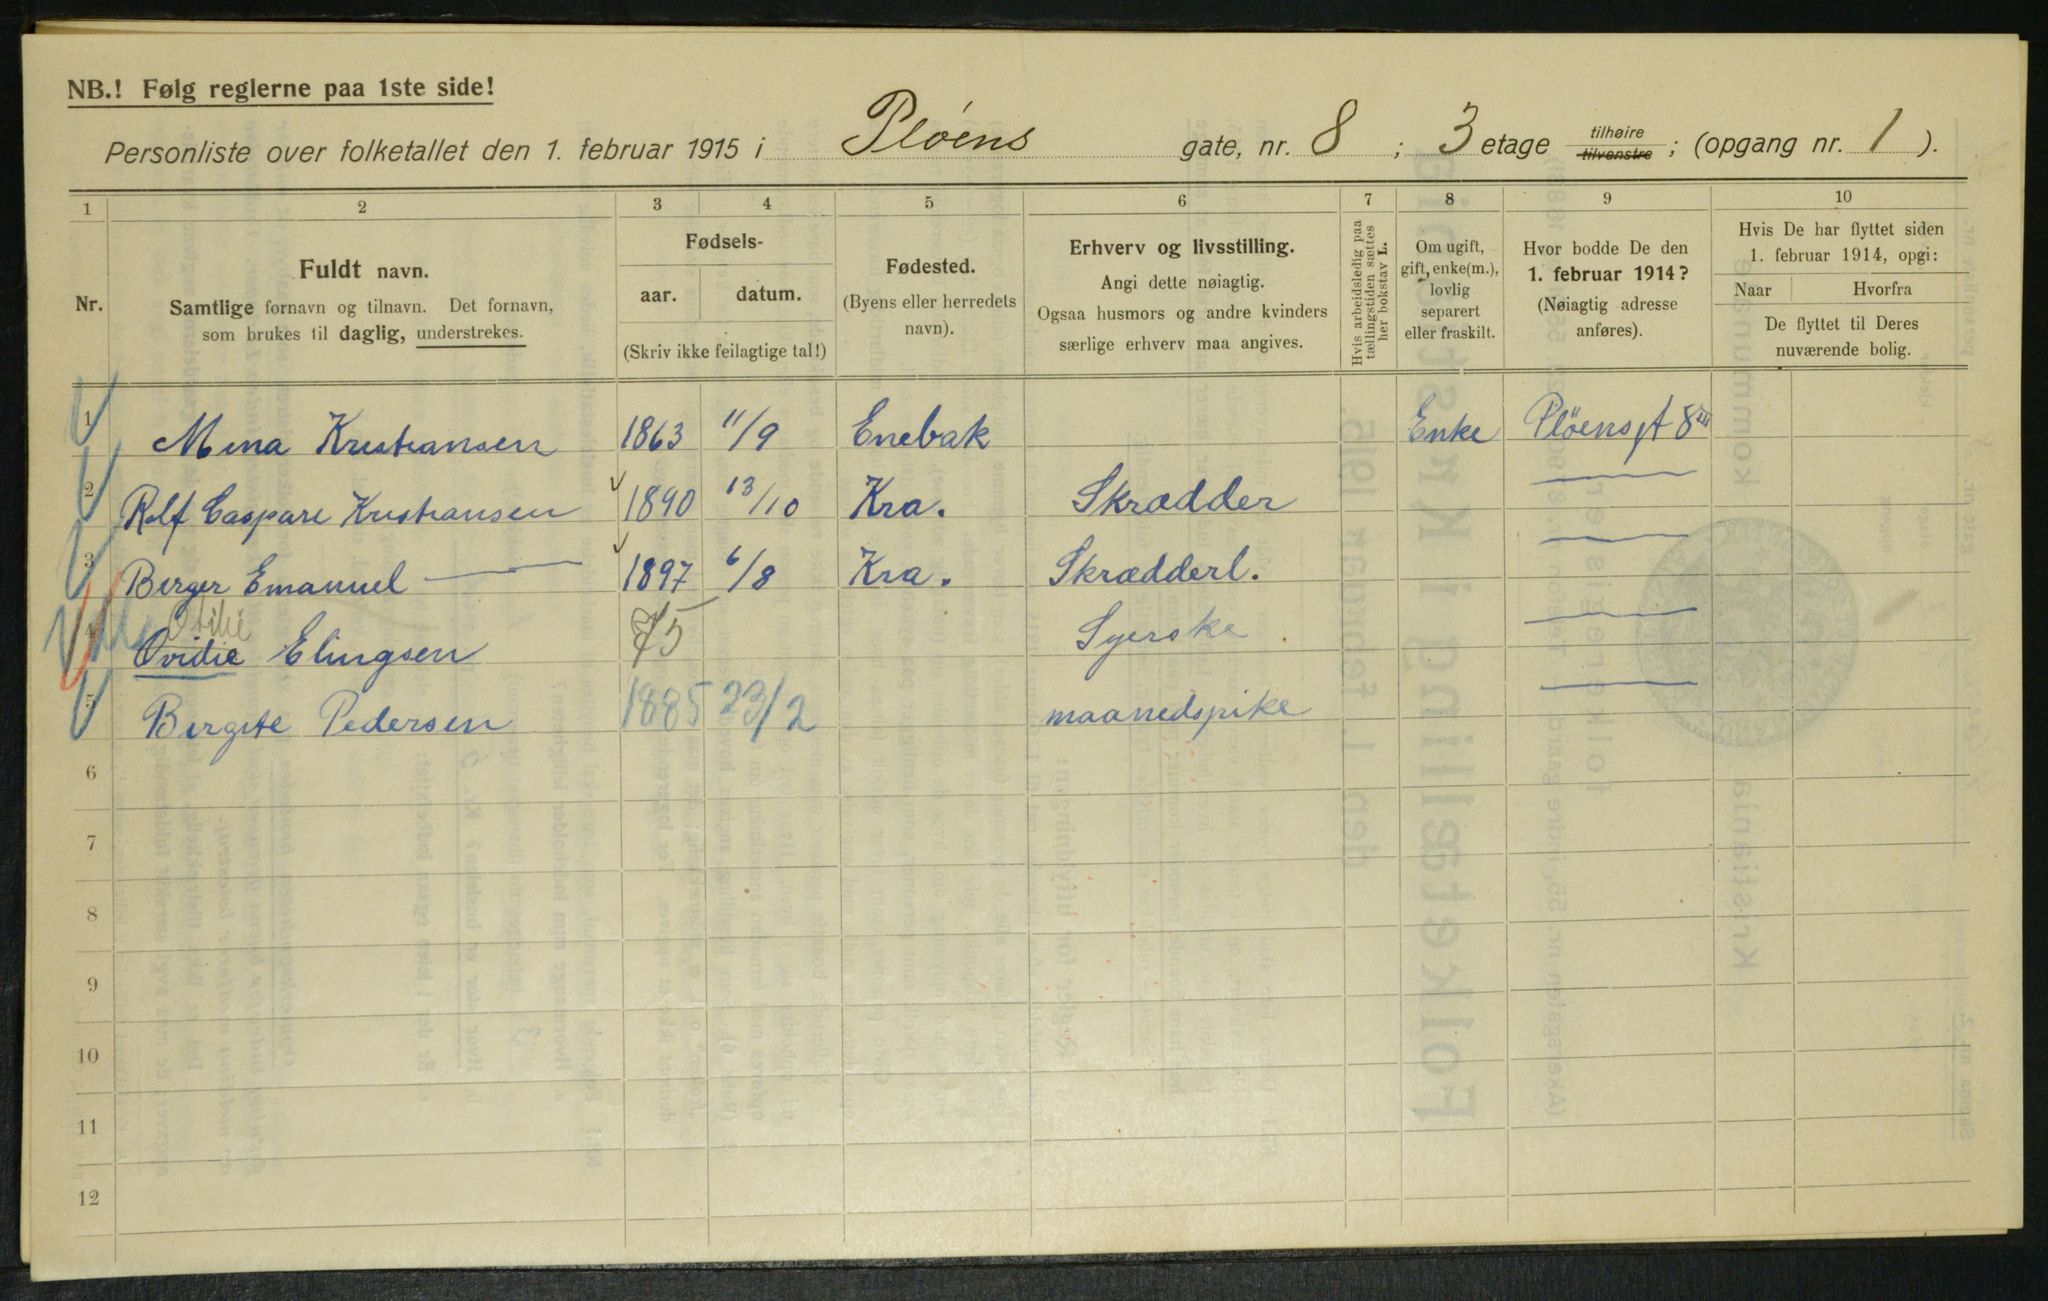 NB.! Følg reglerne paa 1ste side!
Personliste over folketallet den 1. februar 1915 i Pløens gate, nr. 8 ; 3 etage tilhøire tilvenstre ; (opgang nr. 1 ).
1 2 3 4 5 6 7 8 9 10
Nr.
Fuldt navn.
Samtlige fornavn og tilnavn. Det fornavn,
som brukes til daglig, understrekes.
Fødsels-
aar. datum.
(Skriv ikke feilagtige tal!)
Fødested.
(Byens eller herredets
navn).
Erhverv og livsstilling.
Angi dette nøiagtig.
Ogsaa husmors og andre kvinders
særlige erhverv maa angives.
Hvis arbeidsledig paa
tællingstiden sættes
her bokstav L.
Om ugift,
gift, enke(m.),
lovlig
separert
eller fraskilt.
Hvor bodde De den
1. februar 1914?
(Nøiagtig adresse
anføres).
Hvis De har flyttet siden
1. februar 1914, opgi:
Naar Hvorfra
De flyttet til Deres
nuværende bolig.
1 Mina Kristiansen 1863 11/9 Enebak Enke Pløensgt 8 III
2 Rolf Caspare Kristiansen 1890 13/10 Kra. Skrædder —
3 Berger Emanuel — 1897 6/8 Kra. Skrædderl. —
Otilie
4 Ovidie Elingsen 75 Syerske —
5 Birgite Pedersen 1885 23/2 maanedspike —
6
7
8
9
10
11
12